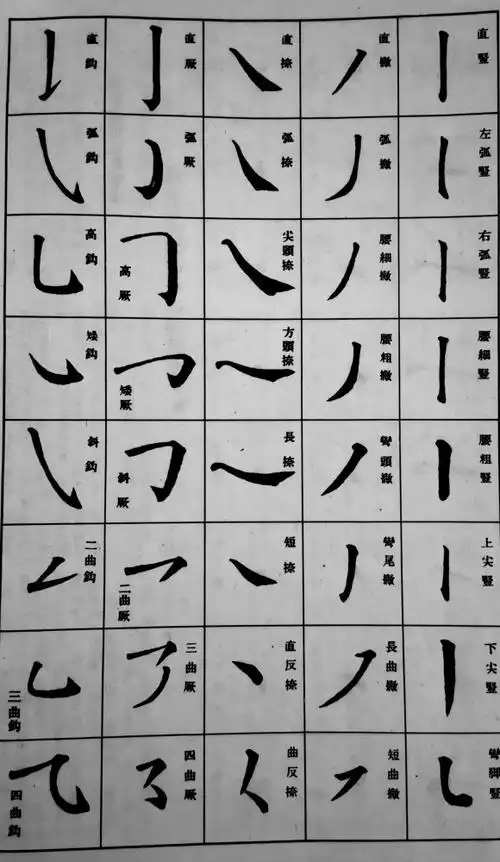 直豎
左弧豎
右弧豎
腰細豎
腰粗豎
上尖豎
下尖豎
彎脚豎
直撇
弧撇
腰細撇
腰粗撇
彎頭撇
彎尾撇
長曲撇
短曲撇
直捺
弧捺
尖頭捺
方頭捺
長捺
短捺
直反捺
曲反捺
直厥
弧厥
高厥
矮厥
斜厥
二曲厥
三曲厥
四曲厥
直鈎
弧鈎
高鈎
矮鈎
斜鈎
二曲鈎
三曲鈎
四曲鈎